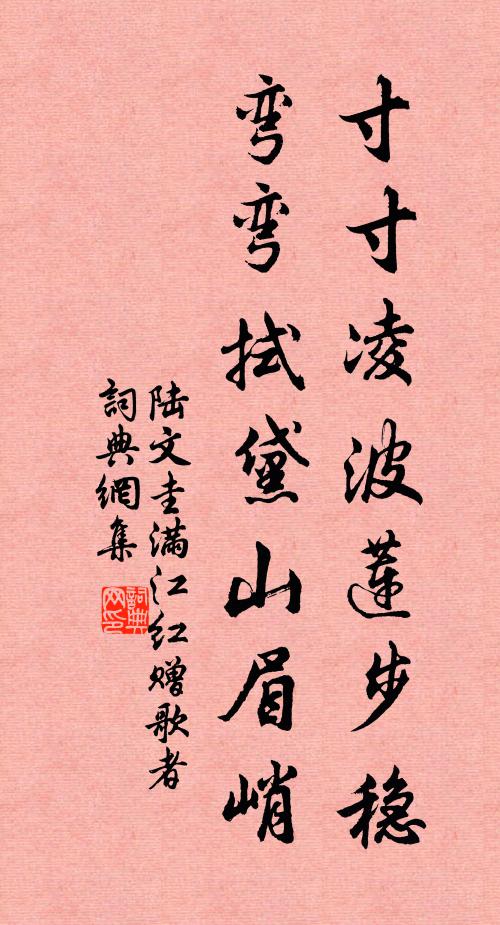 寸寸凌波莲步稳
弯弯拭黛山眉峭
陆文圭满江红赠歌者
詞典網集
詞典网印